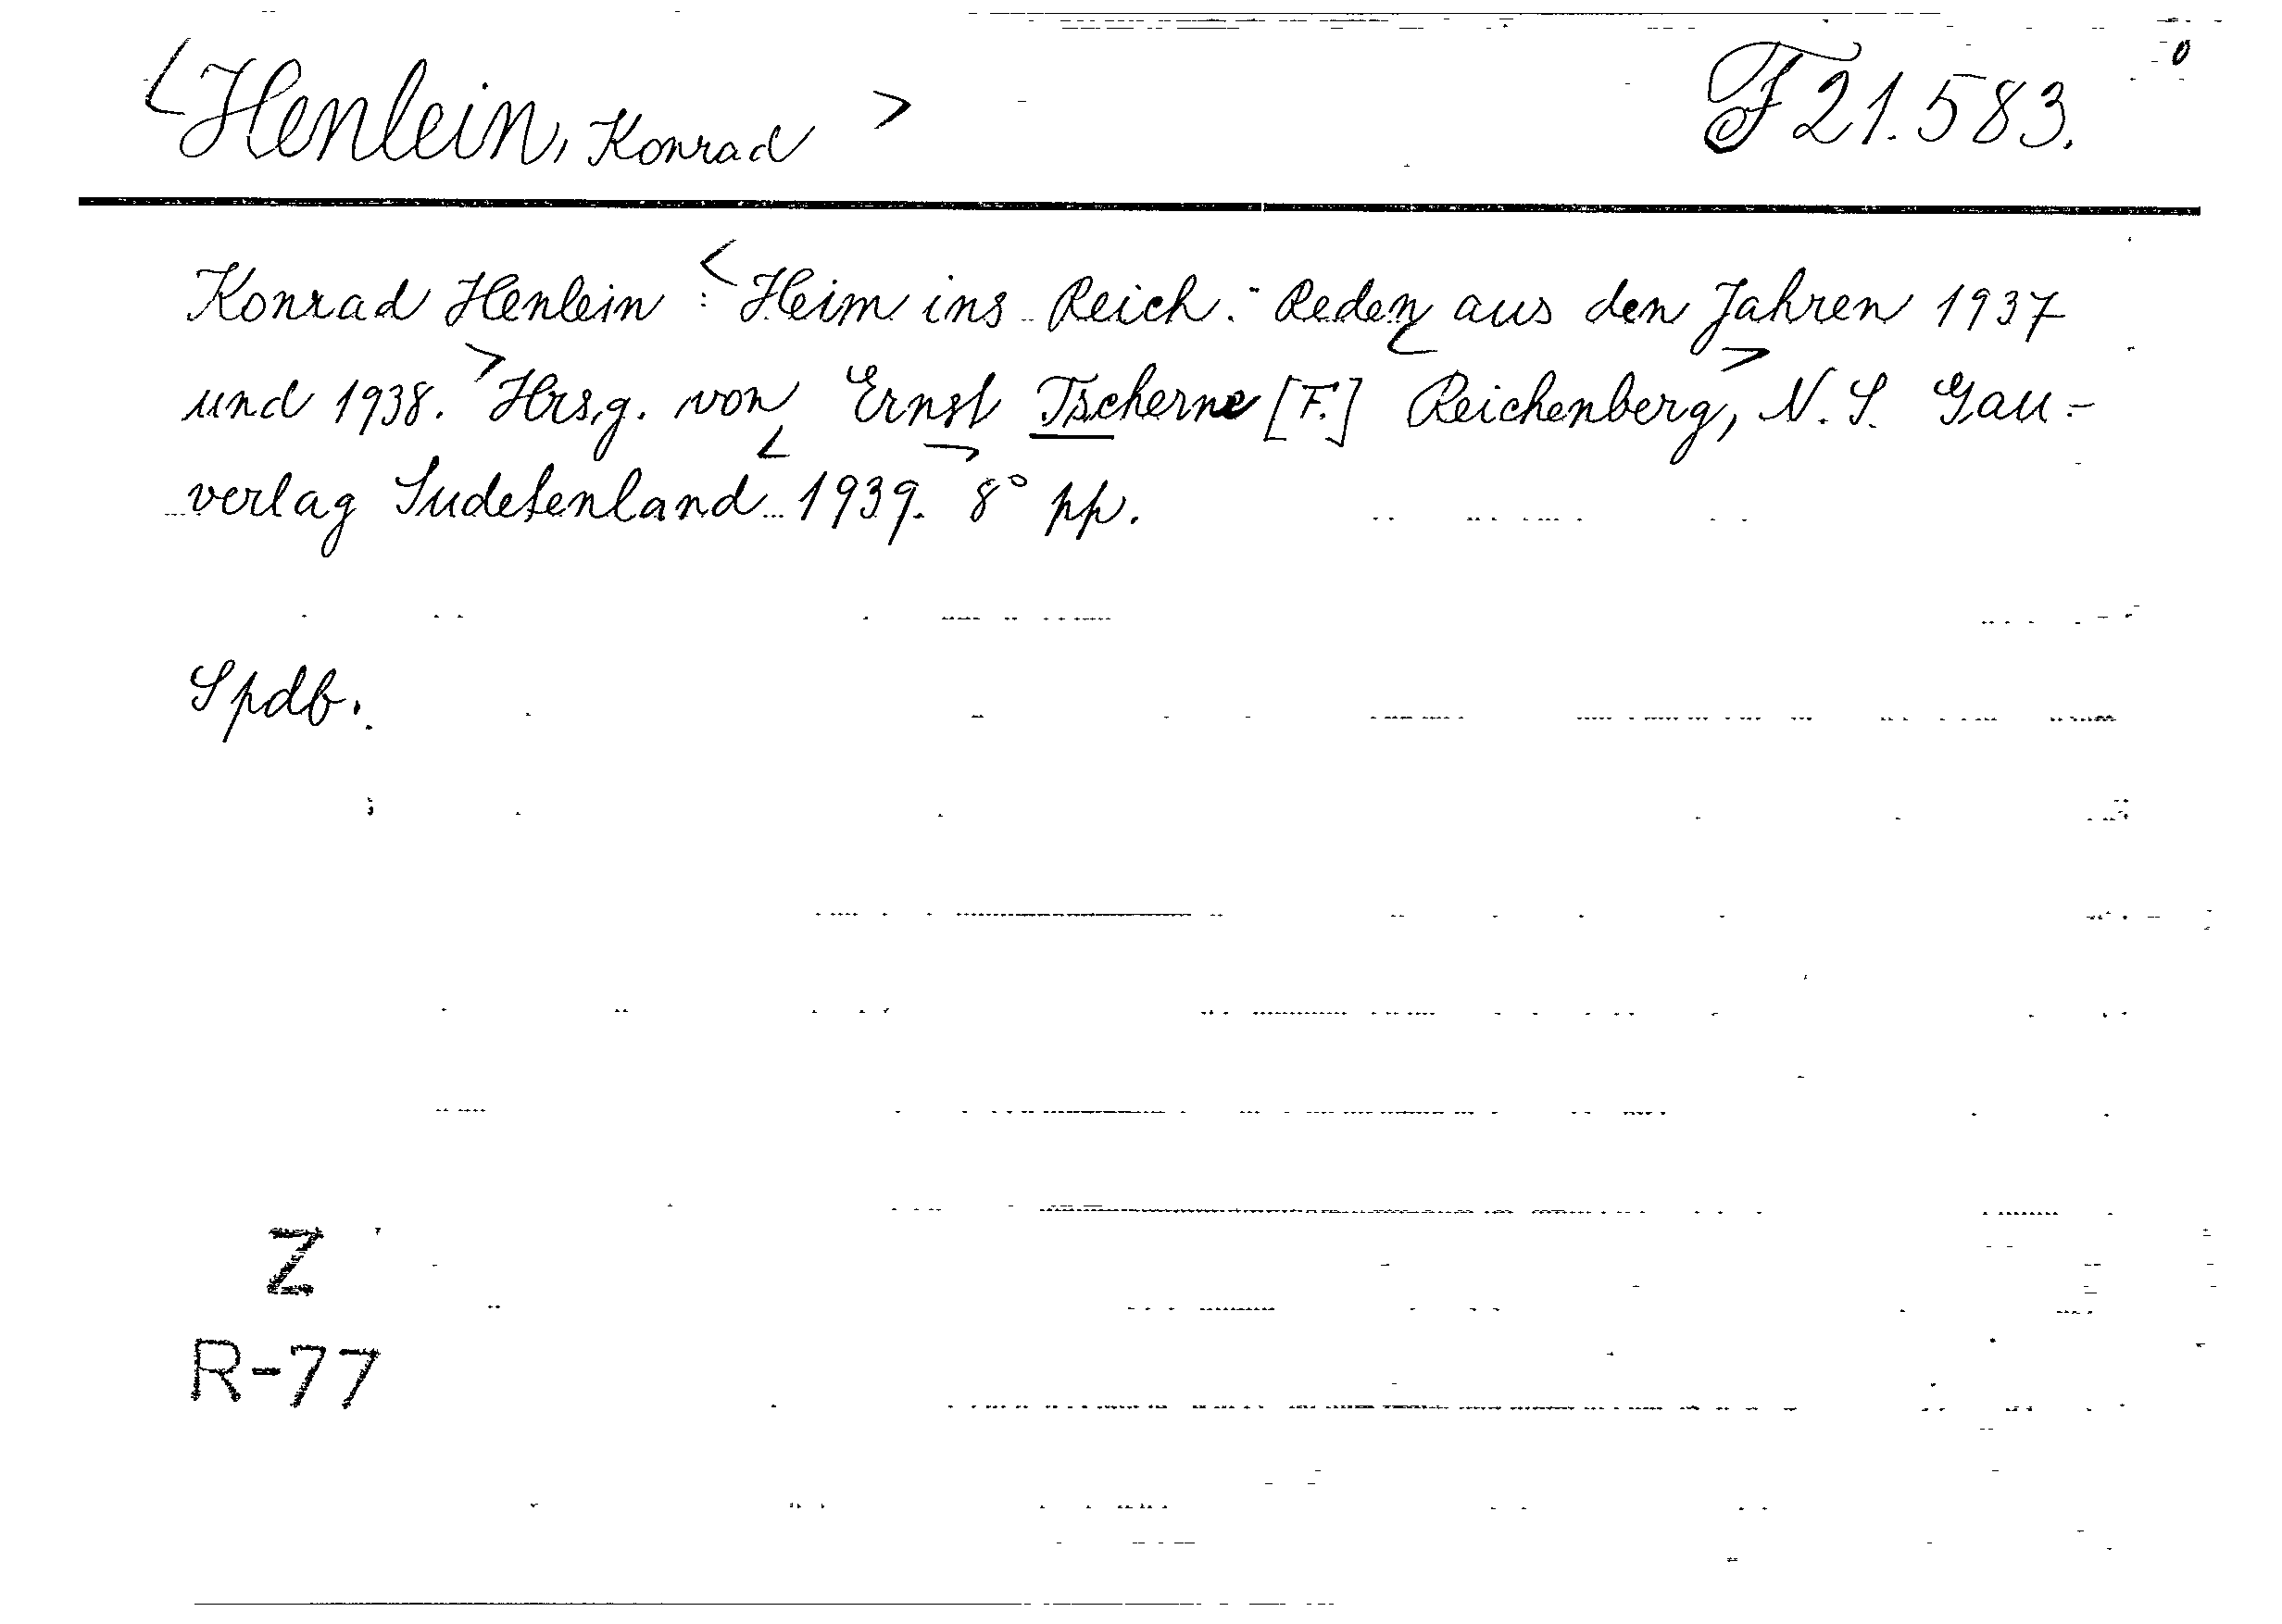 <Henlein, Konrad> F 21.583.
Konrad Henlein : <Heim ins Reich. - Reden aus den Jahren 1937
und 1938.> Hrsg. von Ernst Tscherne [F.] <Reichenberg,> N. S. Gau-
verlag Sudetenland <1939.> 8° pp.
Spdb.
Z
R-77